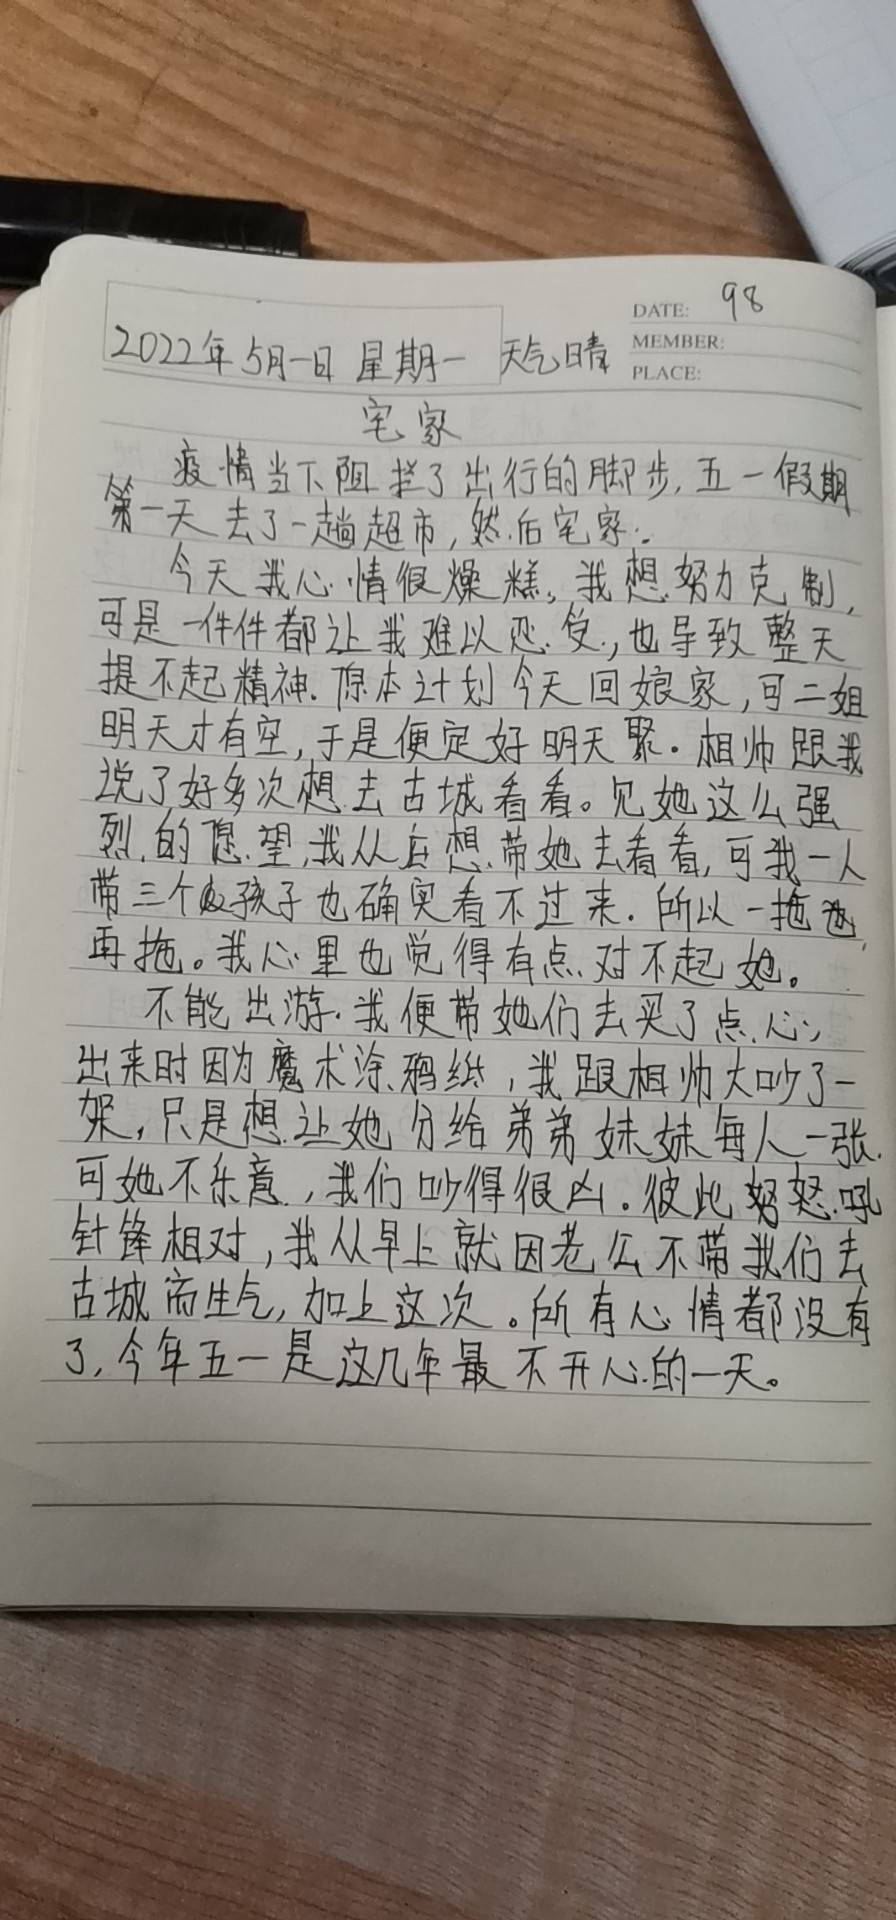 DATE: 98
2022年5月一日 星期一 天气晴
MEMBER:
PLACE:
宅家
疫情当下阻拦了出行的脚步,五一假期
第一天去了一趟超市,然后宅家.
今天我心情很燥糕,我想努力克制,
可是一件件都让我难以忍受,也导致整天
提不起精神.原本计划今天回娘家,可二姐
明天才有空,于是便定好明天聚.相帅跟我
说了好多次想去古城看看。见她这么强
烈的愿望,我从去想带她去看看,可我一人
带三个孩子也确实看不过来.所以一拖
再拖。我心里也觉得有点对不起她。
不能出游.我便带她们去买了点心,
出来时因为魔术涂鸦纸,我跟相帅大吵了一
架,只是想让她分给弟弟妹妹每人一张.
可她不乐意,我们吵得很凶。彼此怒吼
针锋相对,我从早上就因老公不带我们去
古城而生气,加上这次。所有心情都没有
了,今年五一是这几年最不开心的一天。